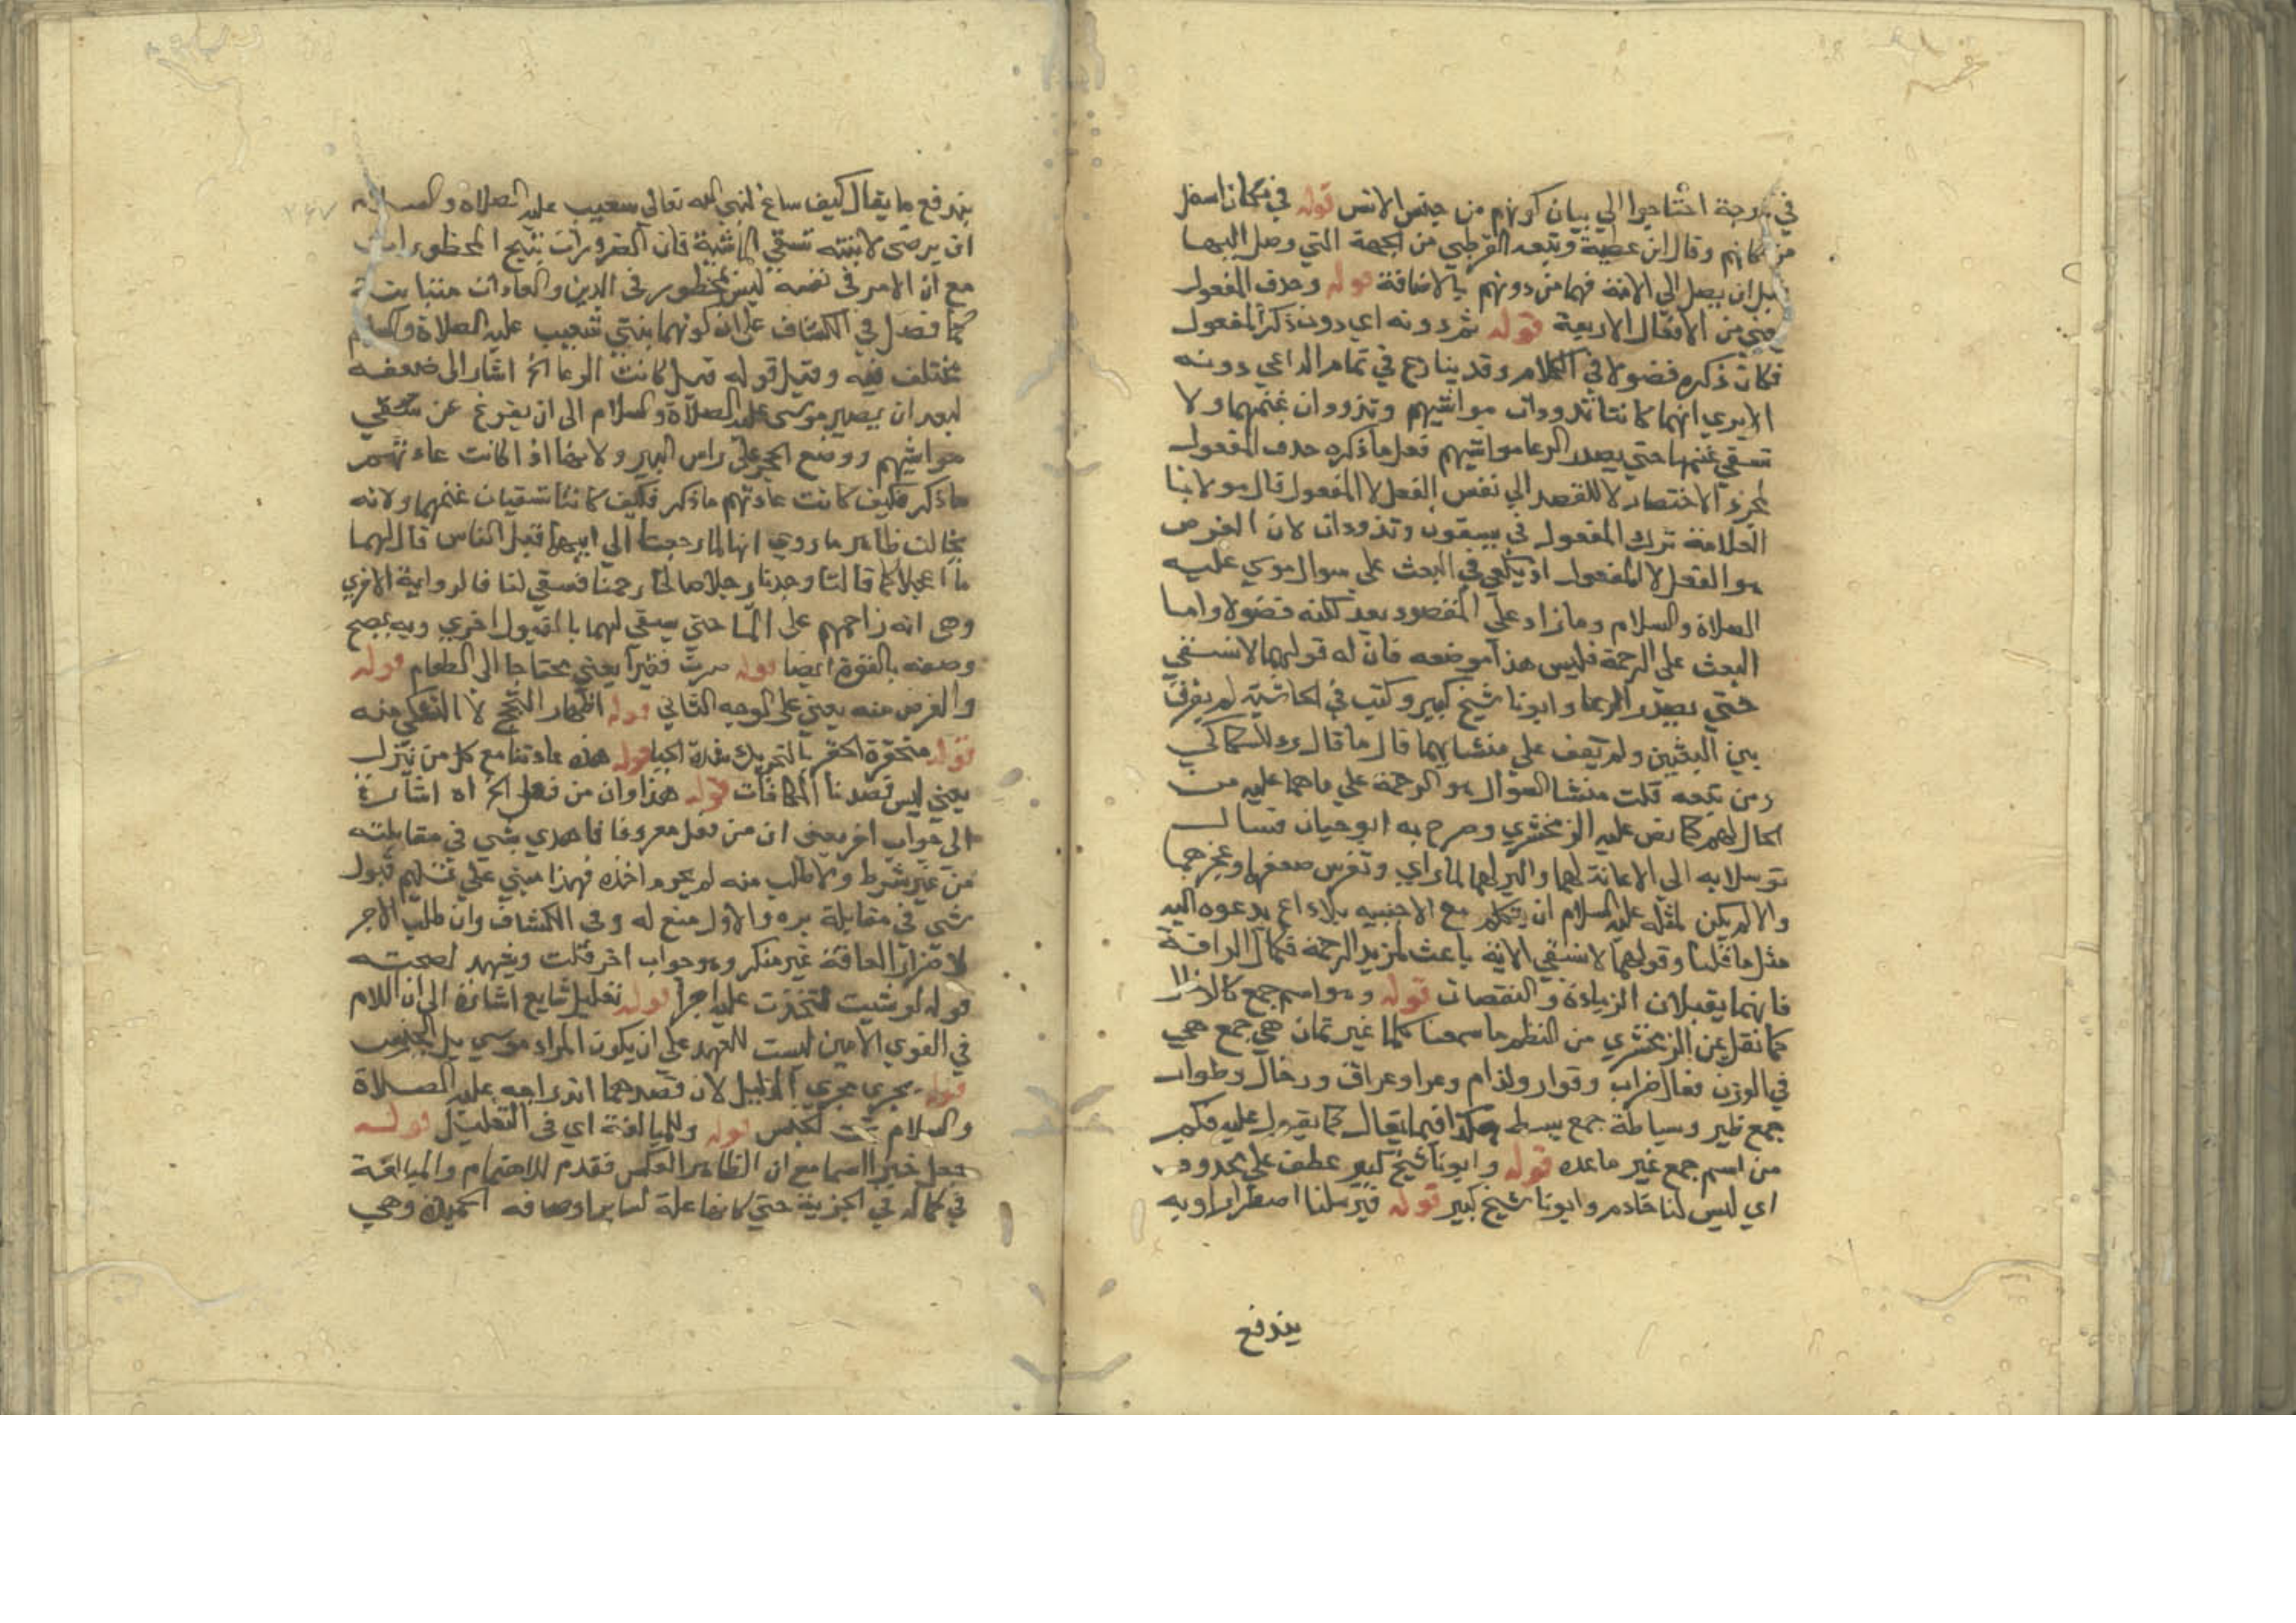 في درجة احتاجوا الي بيان كونهم من جنس الانس قوله في مكان اسفل
من مكانهم وقال ابن عطية وتبعه القرطبي من الجهة التي وصل اليها
قبل ان يصل الي الامة فهما من دونهم بالاضافة قوله وحذف المفعول
يعني من الافعال الاربعة قوله ثم دونه اي دون ذكر المفعول
فكان ذكره فضولا في الكلام وقد ينازع في تمام الداعي دونه
الا يري انهما كانتا تذودان مواشيهم وتذودان غنمهما ولا
تسقي غنمهما حتي يصدر الرعا مواشيهم فعل ما ذكره حذف المفعول
لمجرد الاختصار لا للقصد الي نفس الفعل لا المفعول قال مولانا
العلامة ترك المفعول في يسقون وتذودان لان الغرض
هو الفعل لا المفعول اذ يكفي في البعث علي سوال موسي عليه
الصلاة والسلام وما زاد علي المقصود يعد لكنه فضولا واما
البعث علي الرحمة فليس هذا موضعه فان له قولهما لا نسقي
حتي يصدر الرعا وابونا شيخ كبير وكتب في الحاشية لم يفرق
بين البعثين ولم يقف علي منشايهما قال ما قال رد للسكاكي
ومن تبعه قلت منشا السوال هو الرحمة علي ما هما عليه من
الحال لهم كما نص عليه الزمخشري وصرح به ابو حيان فسال
توسلا به الي الاعانة لهما والبر لهما لما راي وتفرس ضعفهما وعجزهما
والا لم يكن لمثله عليه السلام ان يتكلم مع الاجنبيه بلا داع يدعوه اليه
مثل ما قلنا وقولهما لا نسقي الاية باعث لمزيد الرحمة فكمال الرافة
فانهما يقبلان الزيادة والنقصان قوله وهو اسم جمع كالرخال
كما نقل عن الزمخشري من النظم ما سمعنا كلما غير ثمان هي جمع هي
في الوزن فعال ضراب وقوار ولذام وعرا وعراق ورخال وظوار
جمع ظير وسياطة جمع بسط هكذا فيما يقال كما يقول عليه فكم
من اسم جمع غير ما عده قوله وابونا شيخ كبير عطف علي محذوف
اي ليس لنا خادم وابونا شيخ كبير قوله فيرسلنا اضطرارا وبه
يندفع
يندفع ما يقال كيف ساغ لنبي الله تعالي شعيب عليه الصلاة والسلام
ان يرضي لابنته تسقي الماشية فان الضرورات تبيح المحظورات
مع ان الامر في نفسه ليس بمحظور في الدين والعادات متباينة
كما فصل في الكشاف علي ان كونهما بنتي شعيب عليه الصلاة والسلام
مختلف فيه وقيل قوله قيل كانت الرعا الخ اشار الي ضعفه
لبعد ان يصير موسي عليه الصلاة والسلام الي ان يفرغ عن سقي
مواشيهم ووضع الحجر علي راس البير ولا سيما اذا كانت عادتهم
ما ذكر فكيف كانت عادتهم ما ذكر فكيف كانتا تسقيان غنمهما ولانه
يخالف ظاهر ما روي انها لما رجعتا الي ابيهما قبل الناس قال لهما
ما اعجلكما قالتا وجدنا رجلا صالحا رحمنا فسقي لنا فالرواية الاخري
وهي انه زاحمهم علي الما حتي يسقي لهما بالقبول اخري وبه يصح
وصفه بالقوة ايضا قوله صرت فقيرا يعني محتاجا الي الطعام قوله
والغرض منه يعني علي الوجه الثاني قوله اظهار التبجح لا التشكي منه
قوله متخفرة الخفر بالتحريك شدة الحيا قوله هذه عادتنا مع كل من ينزل
يعني ليس قصدنا المكافات قوله هذا وان من فعل الخ اه اشارة
الي جواب اخر يعني ان من فعل معروفا فاهدي بشي في مقابلته
من غير شرط ولا طلب منه لم يحرم اخذه فهذا مبني علي تسليم قبول
شي في مقابلة بره والاول منع له وفي الكشاف وان طلب الاجر
لاضرار الفاقة غير منكر وهو جواب اخر قلت ويشهد لصحته
قوله لو شيت لتخذت عليه اجرا قوله تعليل شايع اشارة الي ان اللام
في القوي الامين ليست للعهد علي ان يكون المراد موسي بل للجنس
قوله يجري مجري الدليل لان قصدهما اندراجه عليه الصلاة
والسلام تحت الجنس قوله وللمبالغة اي في التعليل قوله
جعل خير اسما مع ان الظاهر العكس فقدم للاهتمام والمبالغة
في كماله في الخيرية حتي كانها علة لساير اوصافه الحميدة وهي